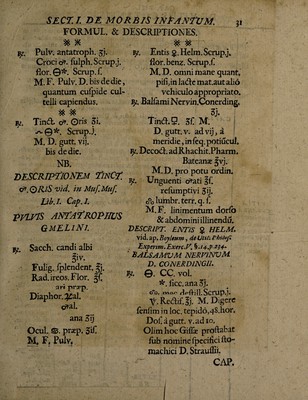 SECT. I. DE MORBIS INFANTUM. 31
FORMUL. & DESCRIPTIONES.
℞. Pulv. antatroph. ʒj.
Croci ♂. sulph. Scrup.j.
flor. 🜔*. Scrup.ſ.
M. F. Pulv. D. bis de die,
quantum cuspide cul-
telli capiendus.
℞. Tinct. ♂. ʒi.
Scrup.j.
M. D. gutt. vij.
bis de die.
NB.
DESCRIPTIONEM TINCT.
♂. vid. in Mus. Mus.
Lib. I. Cap. I.
PULVIS ANTATROPHUS
GMELINI.
℞. Sacch. candi albi
ʒiv.
Fulig. splendent. ʒj.
Rad. ireos. Flor. ʒſ.
ari præp.
Diaphor. ♃al.
♂al.
ana ʒij
Ocul. ♋. præp. ʒiſ.
M. F. Pulv.
℞. Entis ♀. Helm. Scrup.j.
flor. benz. Scrup.ſ.
M. D. omni mane quant,
pisi, in lacte mat. aut alio
vehiculo appropriato.
℞. Balsami Nervin. Conerding.
ʒj.
Tinct. ʒſ. M.
D. gutt. v. ad vij, á
meridie, in seq. poticul.
℞. Decoct. ad Rhachit. Pharm.
Bateanæ ℥vj.
M. D. pro potu ordin.
℞. Unguenti ♂ati ℥ſ.
resumptivi ʒij.
lumbr. terr. q. s.
M. F. linimentum dorso
& abdomini illinendū.
DESCRIPT. ENTIS ♀ HELM.
vid. ap. Boyleum, de Util. Philos.
Experim. Exerc. V. §. 14. p. 234.
BALSAMUM NERVINUM
D. CONERDINGII.
℞. 🜔. CC. vol.
*. sicc. ana ʒj.
destill. Scrup.j.
V. Rectif. ℥j. M. Digere
sensim in loc. tepido, 48. hor.
Dos. á gutt. v. ad 10.
Olim hoc Gissæ prostabat
sub nomine specifici sto-
machici D. Straussii.
CAP.